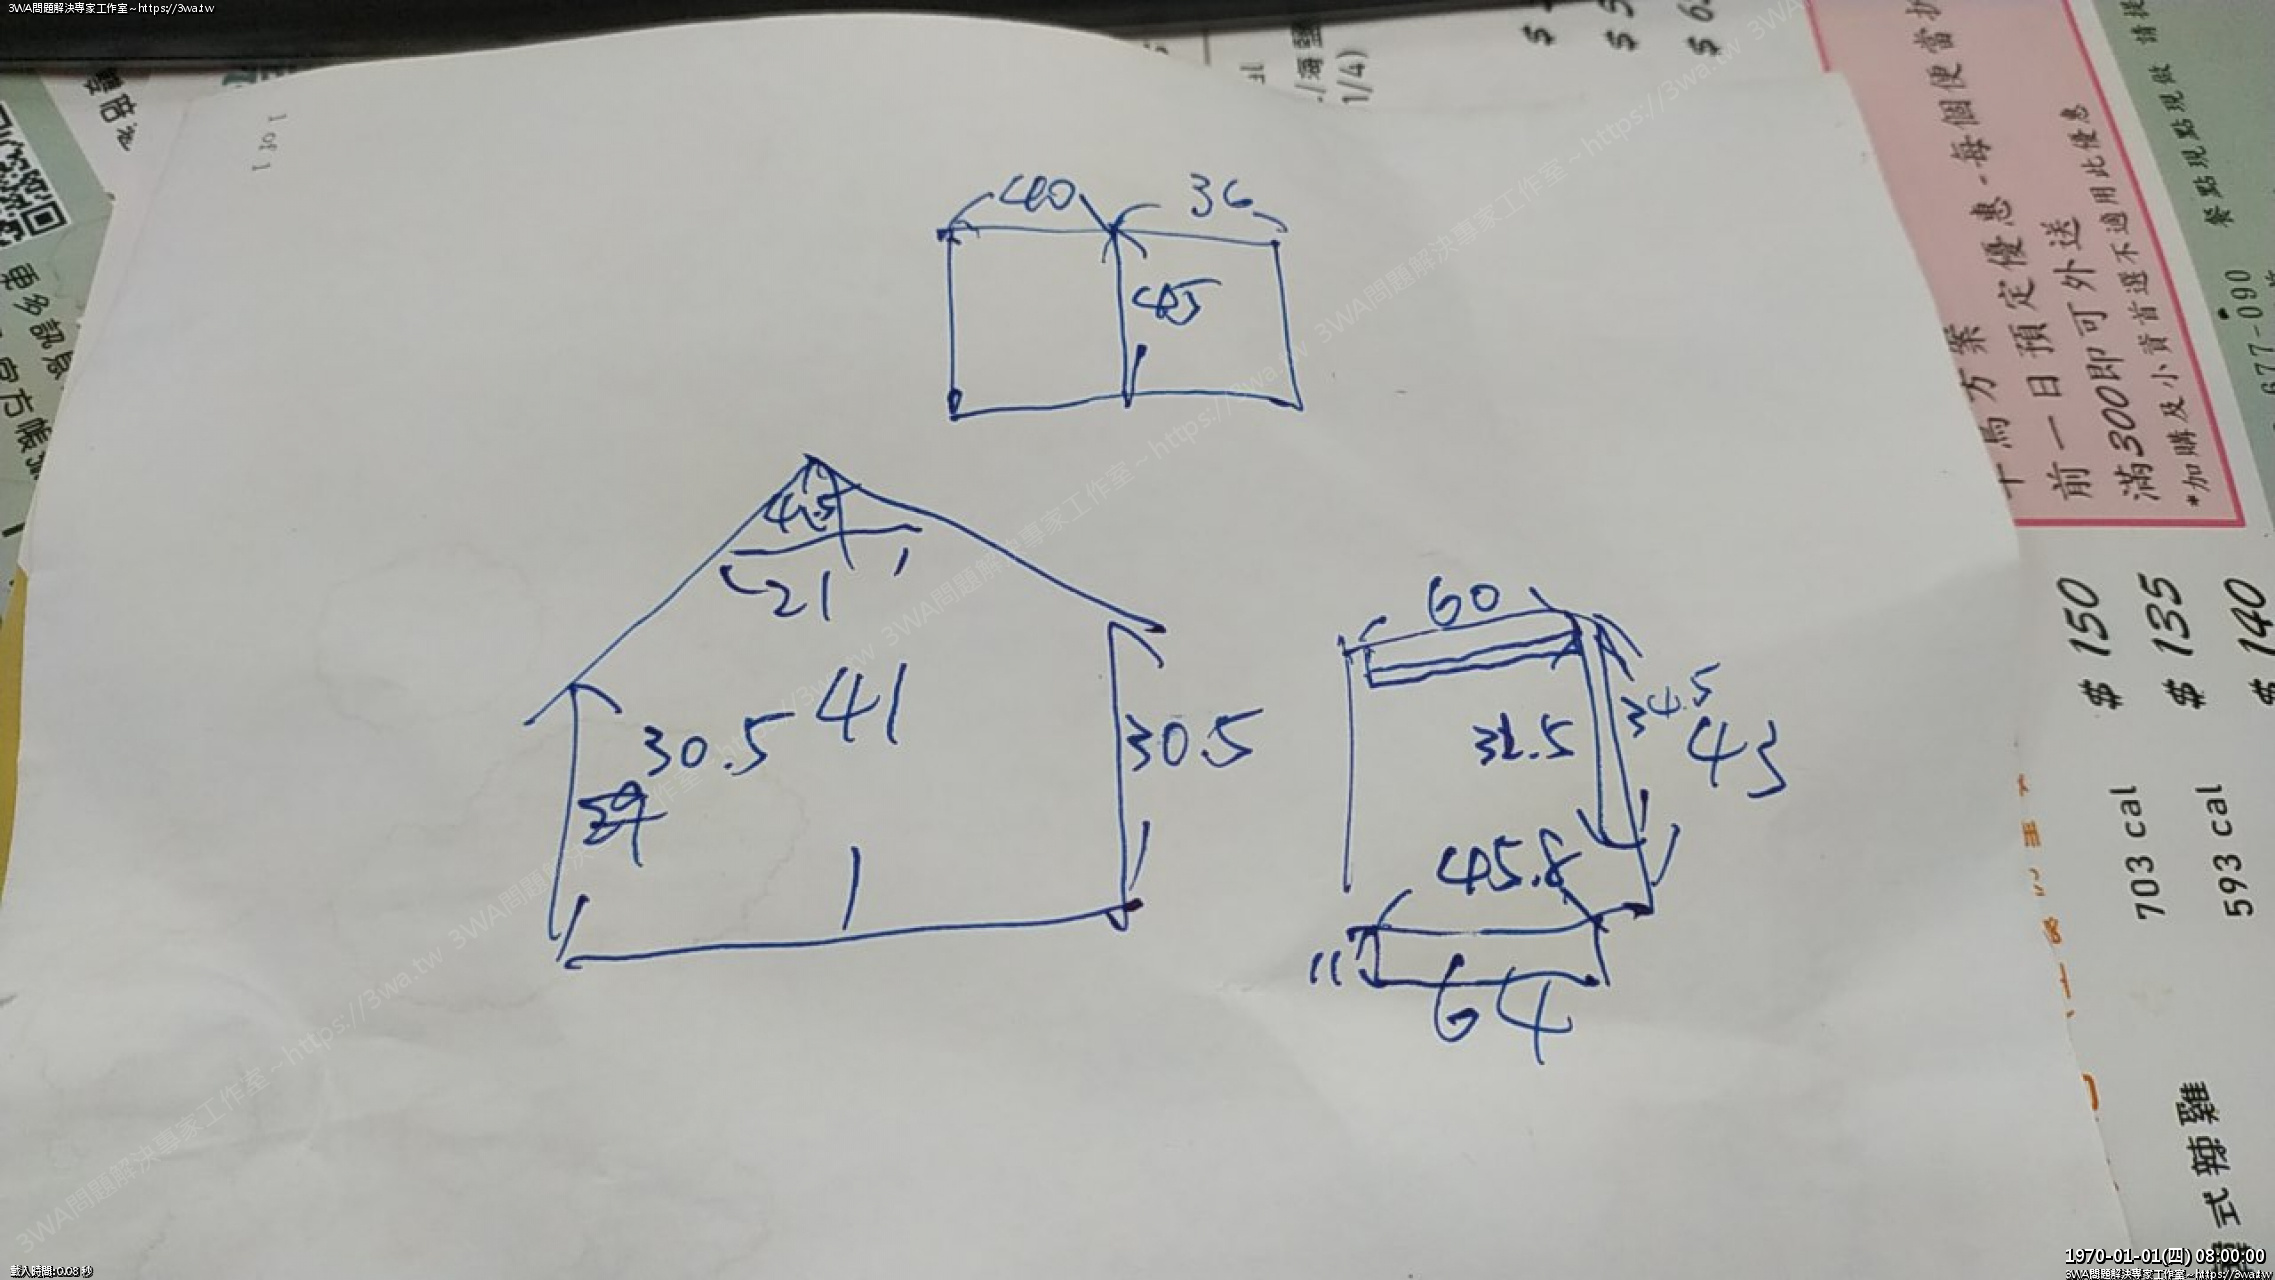 3WA問題解決專家工作室~https://3wa.tw
1 of 1
40
36
45
4.5
21
30.5
41
30.5
60
34.5
43
45.8
11
64
$
$ 5
$ 6.
/海鹽
1/4)
更多訊息
官方帳
前一日預定優惠-每個便當折
滿300即可外送
*加購及小資首選不適用此優惠
餐點現點現做 請提
677-090
$ 150
$ 135
$ 140
703 cal
593 cal
式辣雞
載入時間:0.08 秒
1970-01-01(四) 08:00:00
3WA問題解決專家工作室~https://3wa.tw